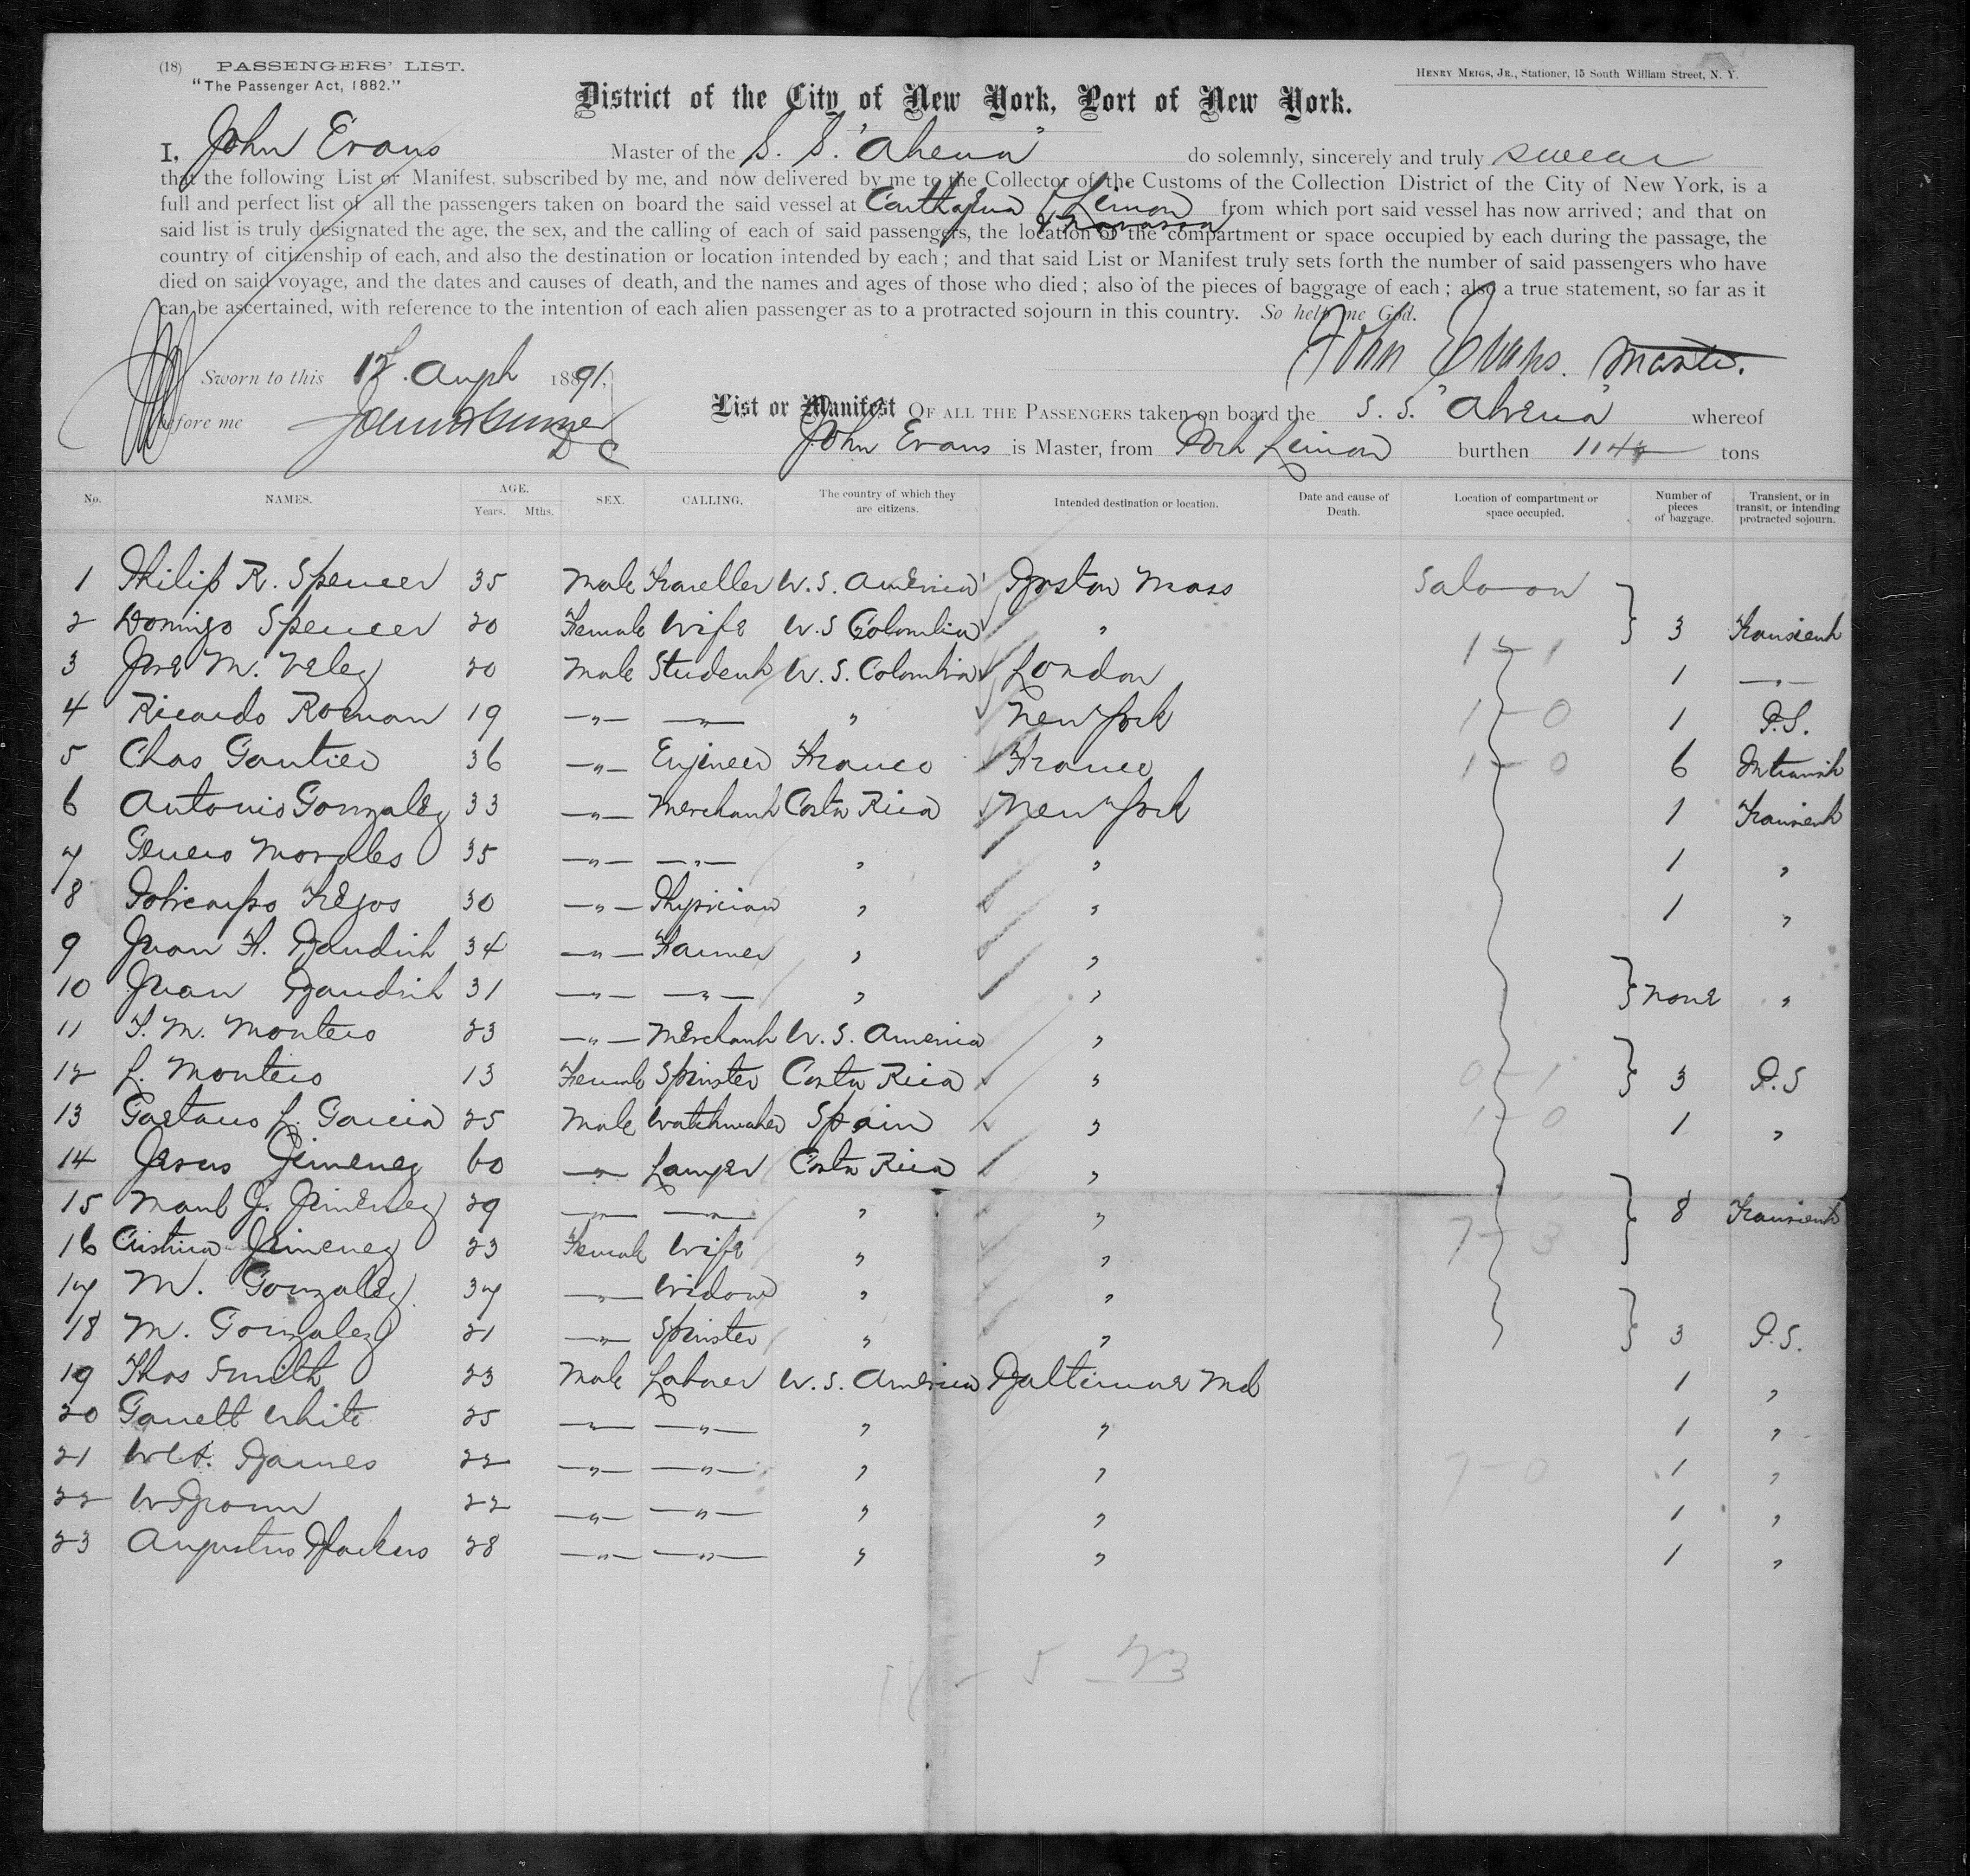 (18) PASSENGERS' LIST.
"The Passenger Act, 1882."
HENRY MEIGS, JR., Stationer, 15 South William Street, N. Y.
District of the City of New York, Port of New York.
I, John Evans Master of the S. S. "Ahena" do solemnly, sincerely and truly swear
that the following List or Manifest, subscribed by me, and now delivered by me to the Collector of the Customs of the Collection District of the City of New York, is a
full and perfect list of all the passengers taken on board the said vessel at Carthagena Limon from which port said vessel has now arrived; and that on
said list is truly designated the age, the sex, and the calling of each of said passengers, the location of the compartment or space occupied by each during the passage, the
country of citizenship of each, and also the destination or location intended by each; and that said List or Manifest truly sets forth the number of said passengers who have
died on said voyage, and the dates and causes of death, and the names and ages of those who died; also of the pieces of baggage of each; also a true statement, so far as it
can be ascertained, with reference to the intention of each alien passenger as to a protracted sojourn in this country. So help me God.
John Evans. Master.
Sworn to this 12 Augt 1891,
before me
D C
List or Manifest OF ALL THE PASSENGERS taken on board the S. S. "Ahena" whereof
John Evans is Master, from Port Limon burthen 1148 tons
No. NAMES. AGE. Years. Mths. SEX. CALLING. The country of which they are citizens. Intended destination or location. Date and cause of Death. Location of compartment or space occupied. Number of pieces of baggage. Transient, or in transit, or intending protracted sojourn.
1 Philip R. Spencer 35 Male Traveller U. S. America Boston Mass Saloon
2 Domingo Spencer 20 Female Wife U. S Colombia " 3 Transient
1-1
3 Jose M. Velez 20 Male Student U. S. Colombia London 1 -"-
4 Ricardo Roman 19 -"- -"- " New York 1-0 1 P.S.
5 Chas Gautier 36 -"- Engineer France France 1-0 6 Intransit
6 Antonio Gonzalez 33 -"- Merchant Costa Rica New York 1 Transient
7 Genero Morales 35 -"- -"- " " 1 "
8 Policarpo Trejos 30 -"- Physician " " 1 "
9 Juan F. Bandrih 34 -"- Farmer " "
10 Juan Bandrih 31 -"- -"- " " none "
11 F. M. Montero 23 -"- Merchant U. S. America "
12 L. Montero 13 Female Spinster Costa Rica " 0-1 3 P.S
13 Gaetano L. Garcia 25 Male Watchmaker Spain " 1-0 1 "
14 Jesus Jimenez 60 -"- Lawyer Costa Rica "
15 Manl J. Jimenez 29 -"- -"- " " 8 Transient
16 Cristina Jimenez 23 Female Wife " " 7-3
17 M. Gonzalez 37 -"- Widow " "
18 M. Gonzalez 21 -"- Spinster " " 3 P.S.
19 Thos Smith 23 Male Laborer U. S. America Baltimore Md 1 "
20 Garrett White 25 -"- -"- " " 1 "
21 Wm. Barnes 22 -"- -"- " " 7-0 1 "
22 W Brown 22 -"- -"- " " 1 "
23 Augustus 28 -"- -"- " " 1 "
18 - 5 - 23